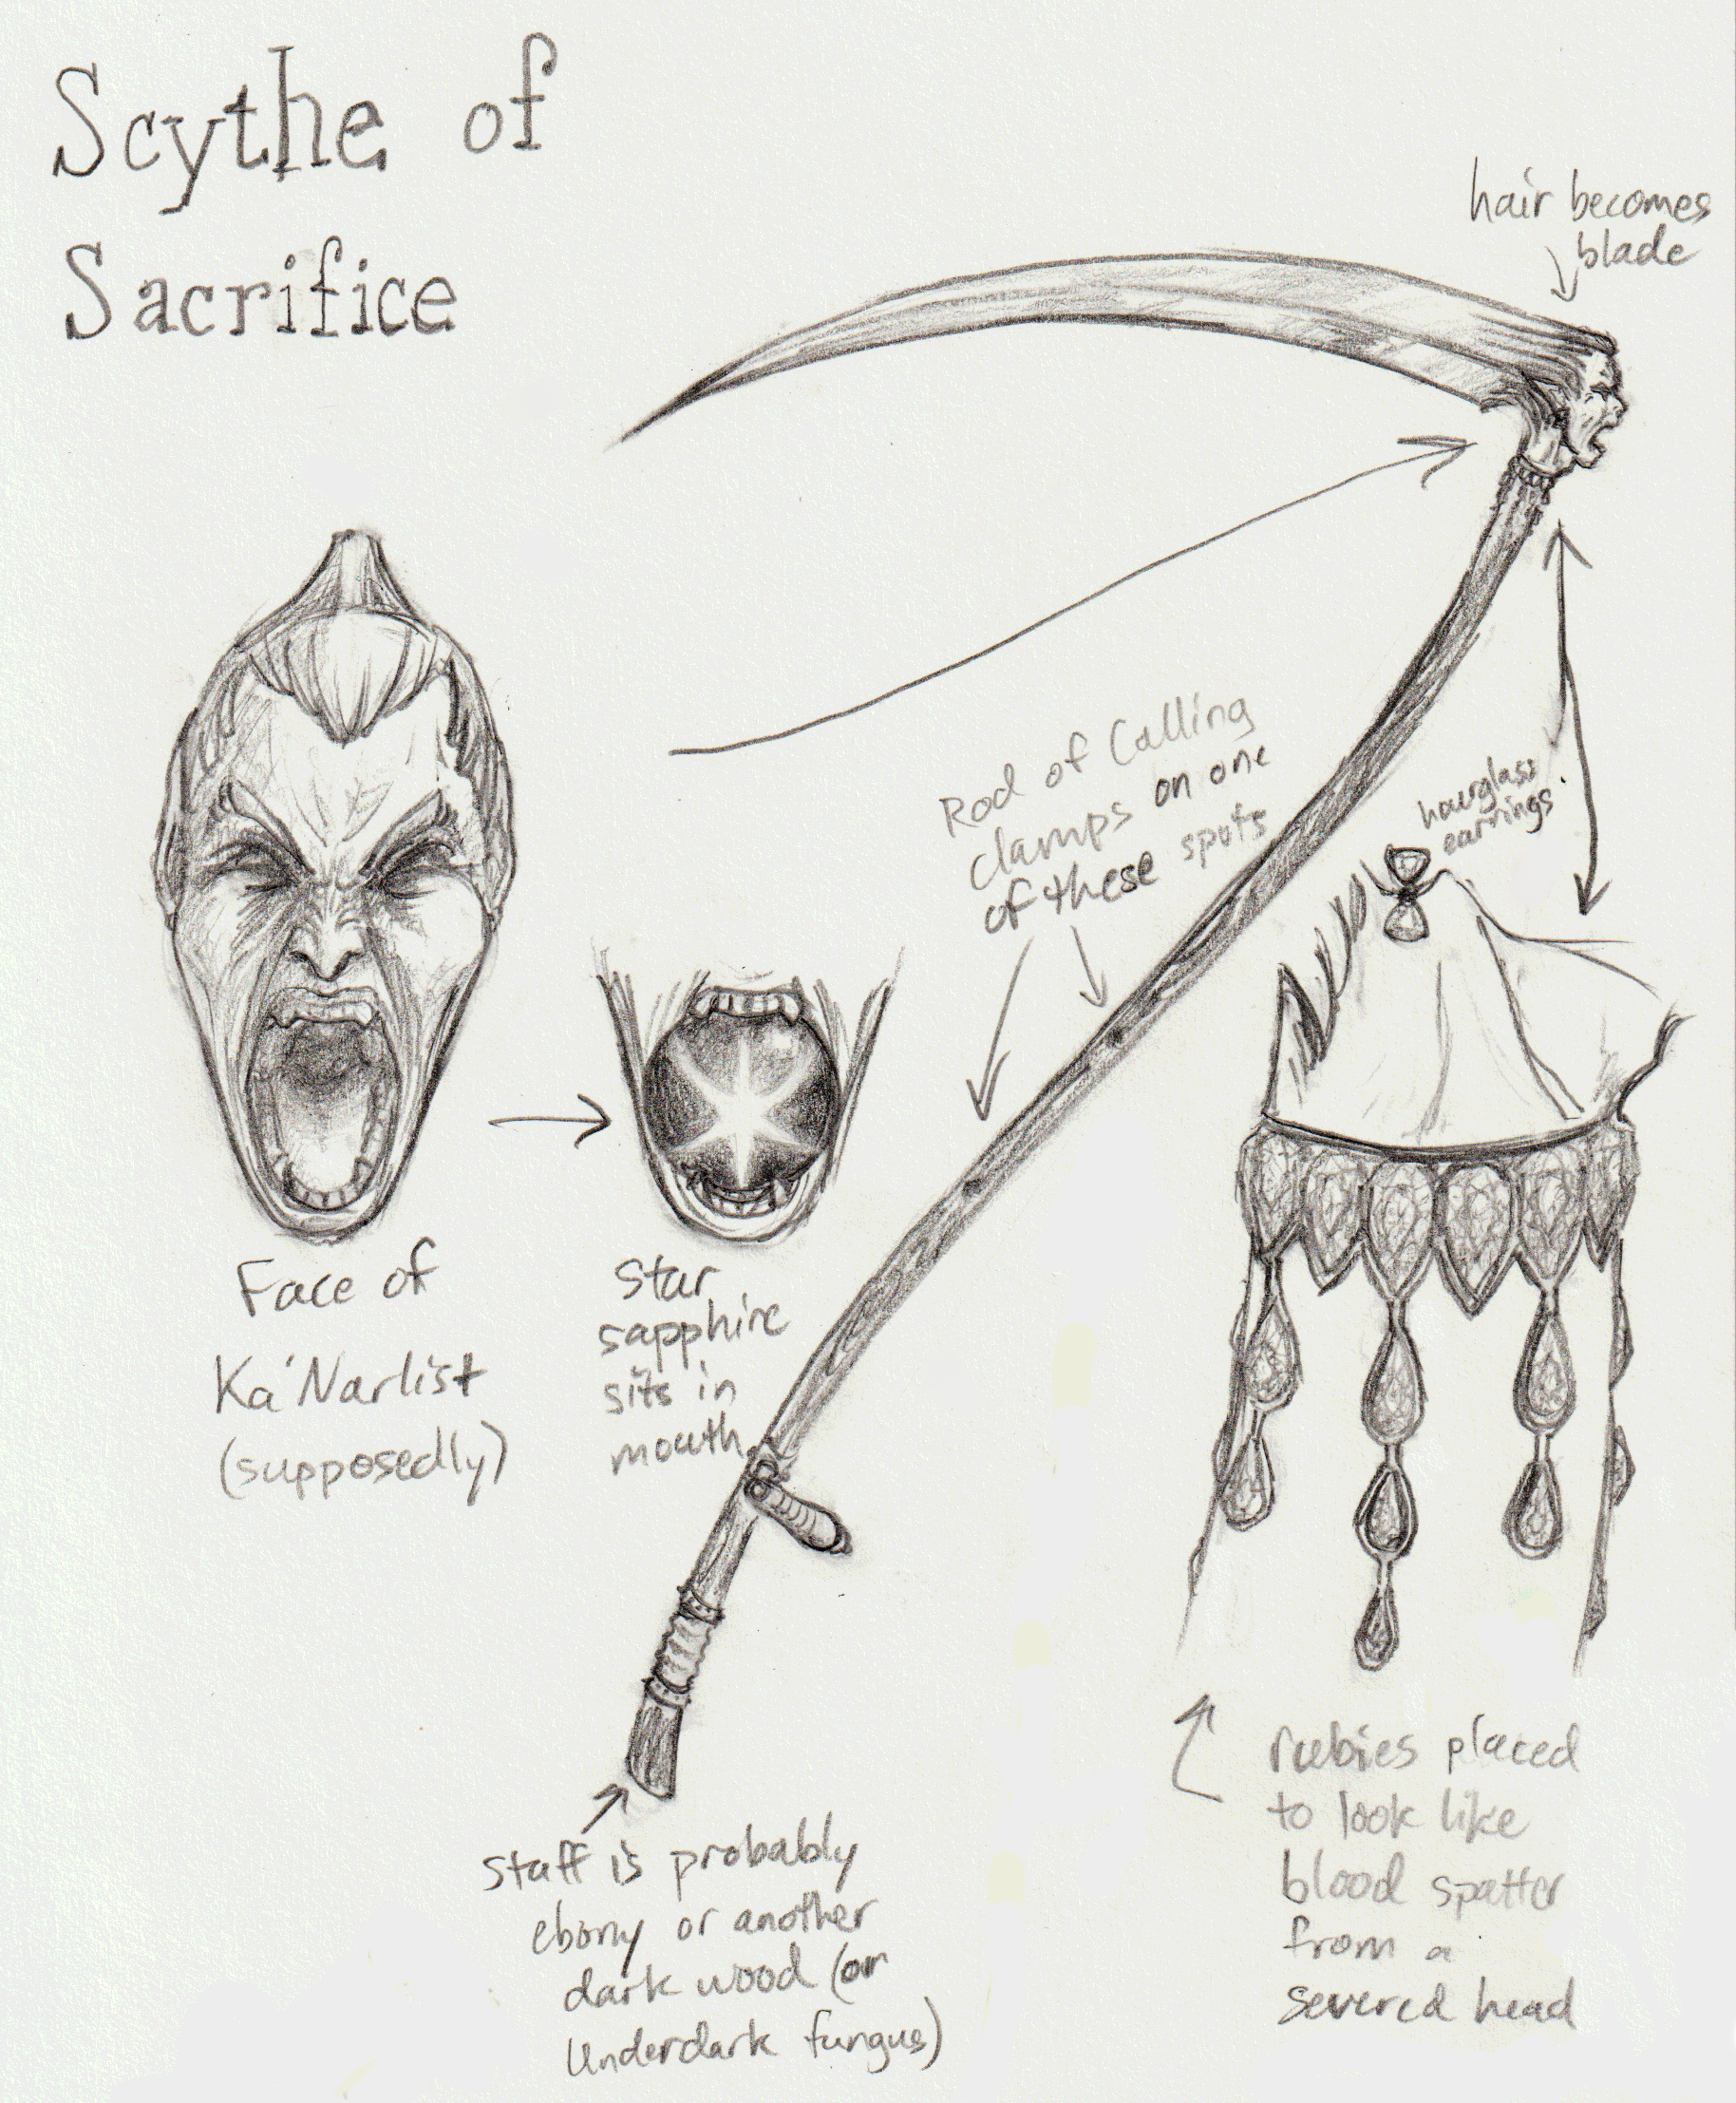 Scythe of
Sacrifice
hair becomes
blade
Rod of Calling
clamps on one
of these spots
hourglass
earrings
Face of
Ka'Narlist
(supposedly)
Star
sapphire
sits in
mouth
Staff is probably
ebony or another
dark wood (or
Underdark fungus)
rubies placed
to look like
blood spatter
from a
severed head